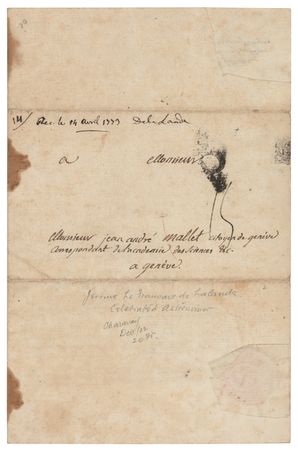 14/ Rec. le 14 avril 1773 De la Lande
a Monsieur
15
Monsieur jean andré mallet citoyen de genève
Correspondant de l'academie des Sciences &c.
a genève.
Jerome Le Francais de Lalande
Celebrated Astronomer
Charavay
Dec/22